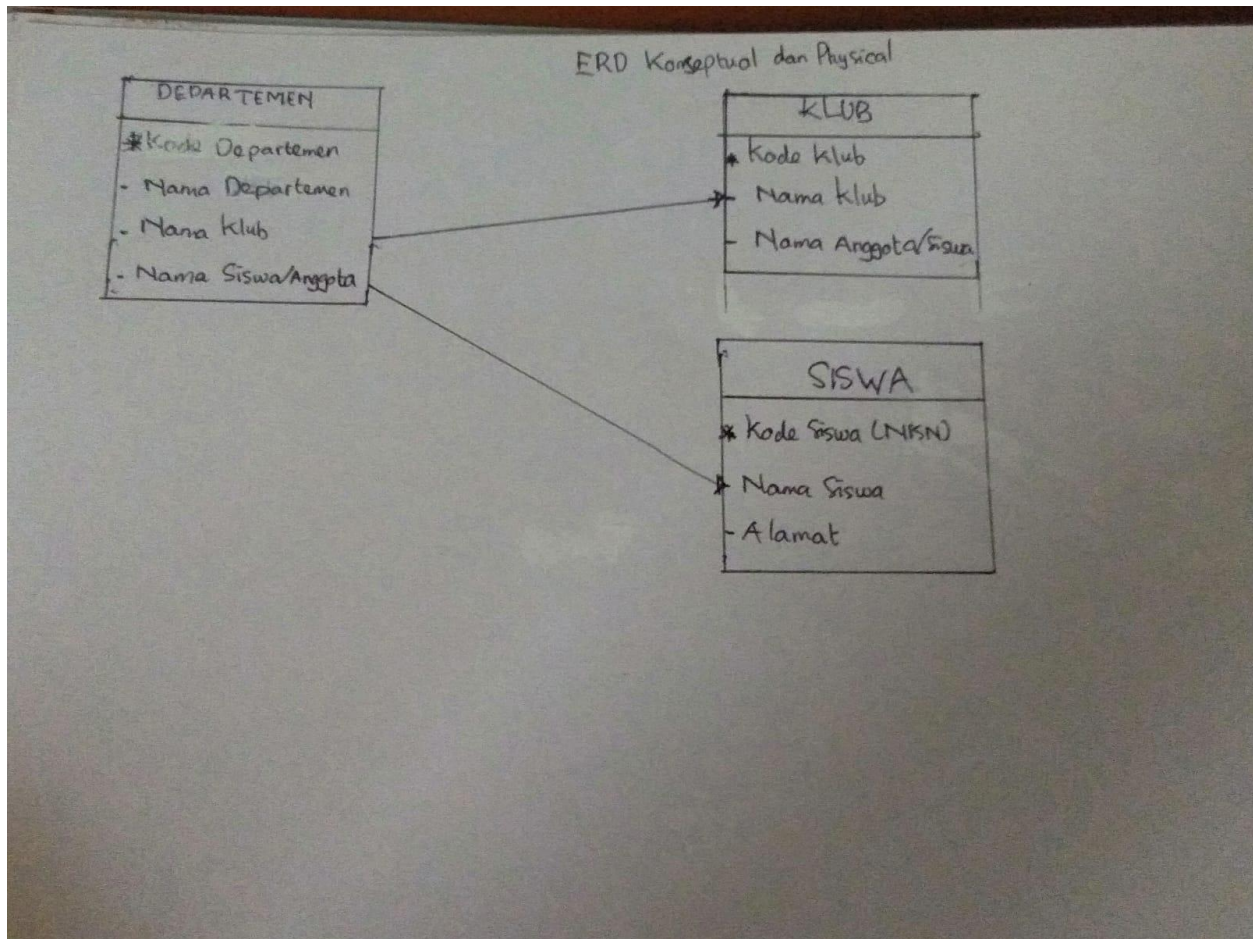 ERD Konseptual dan Physical
DEPARTEMEN
* Kode Departemen
- Nama Departemen
- Nama Klub
- Nama Siswa/Anggota
KLUB
* Kode Klub
- Nama Klub
- Nama Anggota/Siswa
SISWA
* Kode Siswa (NISN)
- Nama Siswa
- Alamat